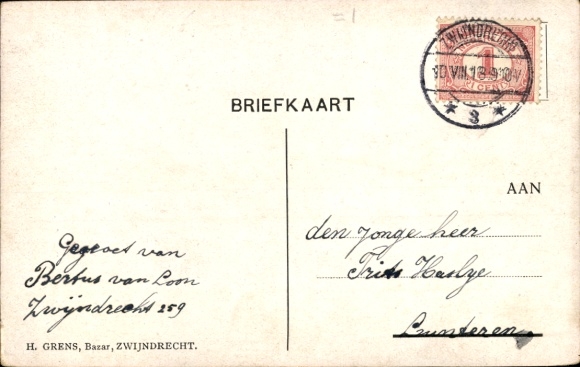 =1
ZWIJNDRECHT
10 VIII 13 9-10V
1
CENT
* 3 *
BRIEFKAART
AAN
den Jonge heer
Frits
Lunteren
Gegroet van
Bertus van Loon
Zwijndrecht 259
H. GRENS, Bazar, ZWIJNDRECHT.